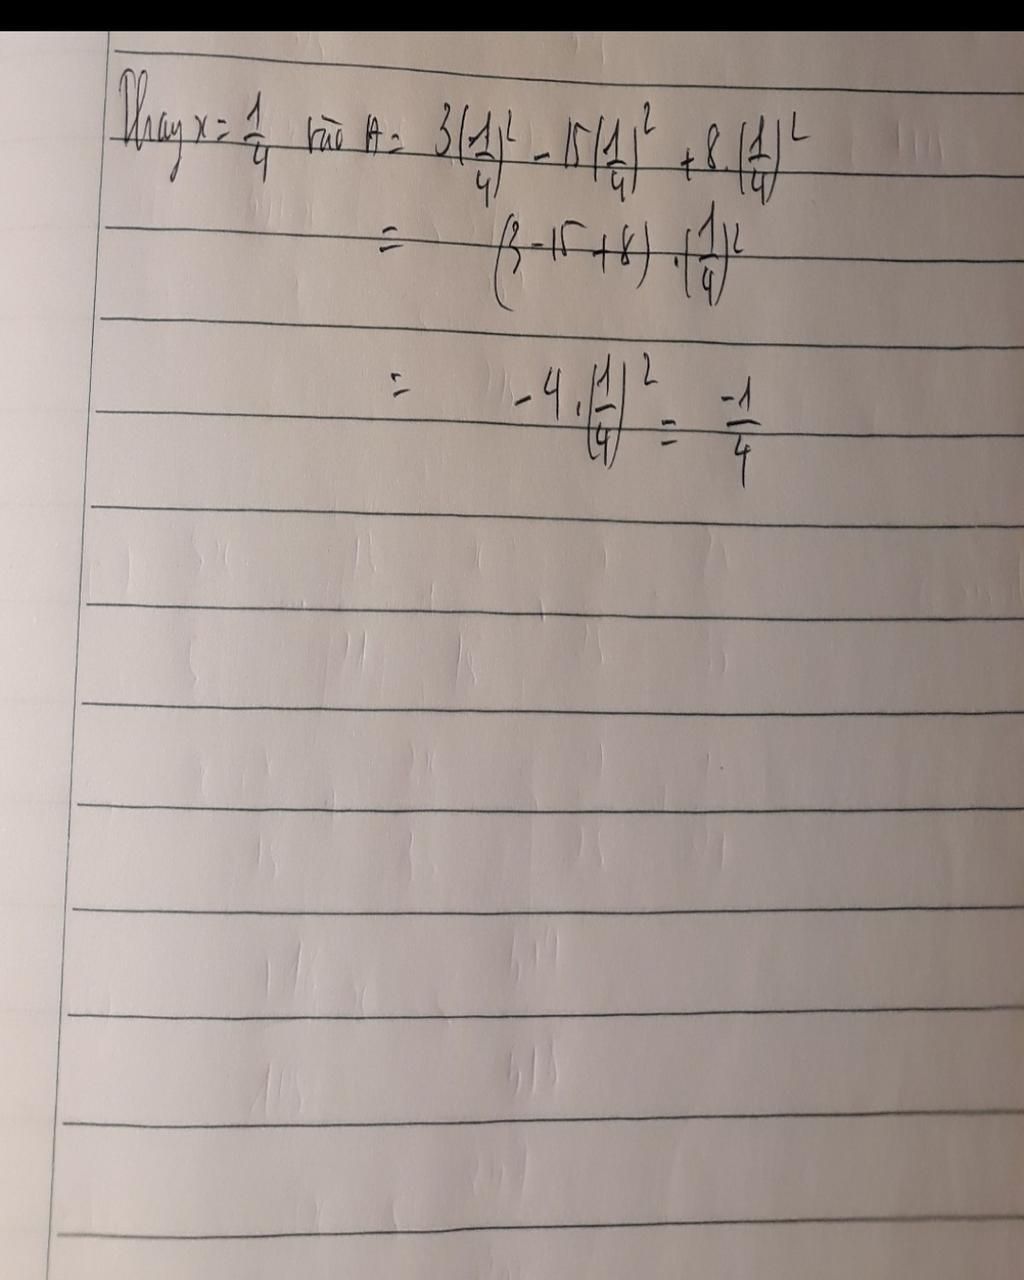 Thay x = 1/4 vào A = 3(1/4)² - 15(1/4)² + 8.(1/4)²
= (3 - 15 + 8) . (1/4)²
= -4 . (1/4)² = -1/4